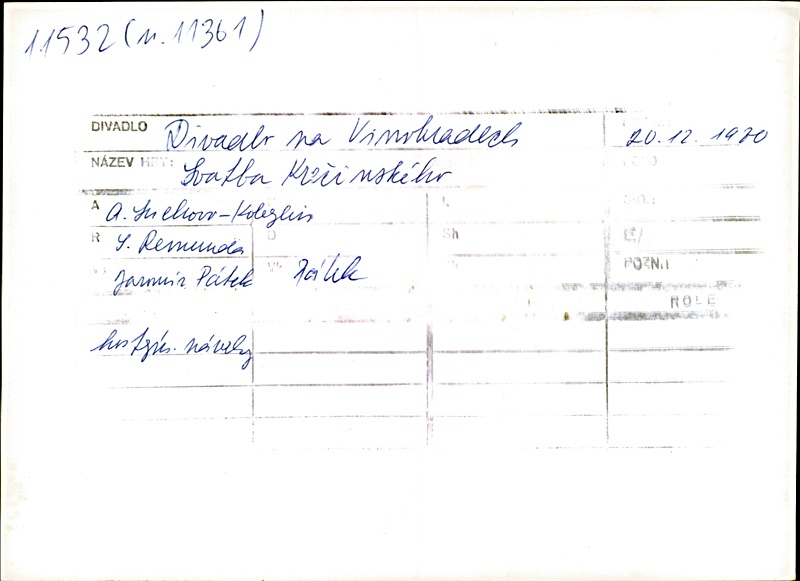 11532 (n. 11361)
DIVADLO Divadlo na Vinohradech 20.12. 1970
NÁZEV HRY: Svatba Krečinského
A A. Suchovo-Kobylin
R S. Remunda Sh
Jaromír Pátek Pátek POZN.:
ROLE